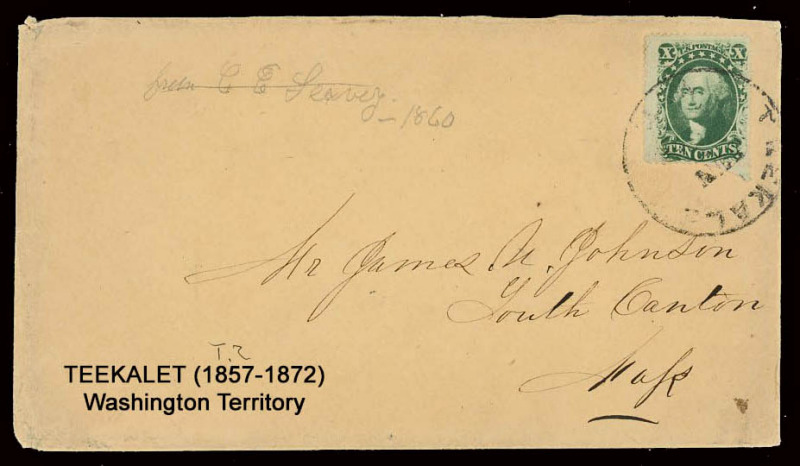 from C E Seavey - 1860
X U.S. POSTAGE X
TEN CENTS
TEEKALE
Mr James N. Johnson
South Canton
Mass
T.2
TEEKALET (1857-1872)
Washington Territory